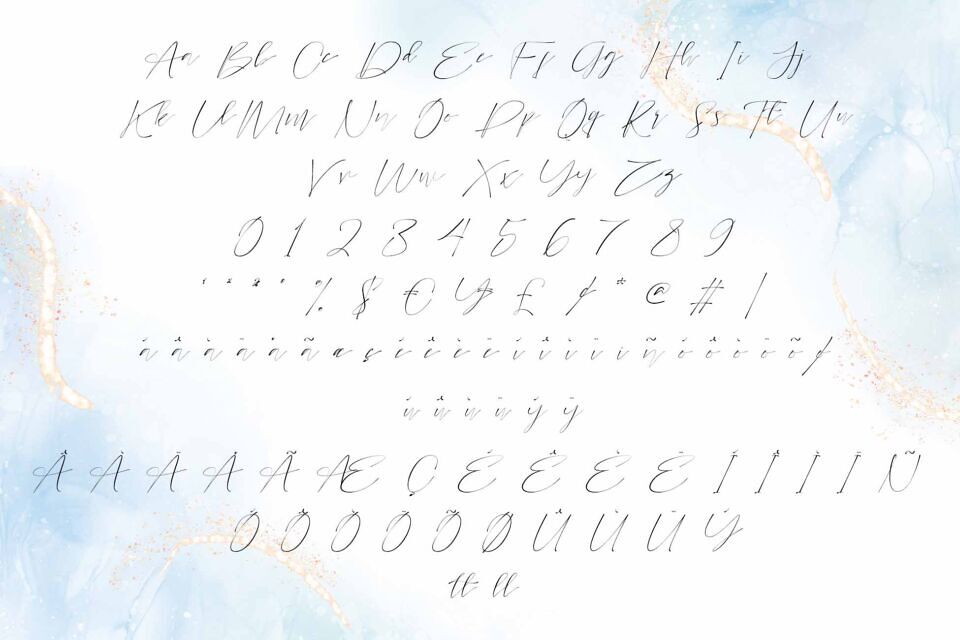 Aa Bb Cc Dd Ee Ff Gg Hh Ii Jj
Kk Ll Mm Nn Oo Pp Qq Rr Ss Tt Uu
Vv Ww Xx Yy Zz
0 1 2 3 4 5 6 7 8 9
% $ € ¥ £ ¢ * @ # |
á â à ä å ã æ ç é ê è ë í î ì ï ı ñ ó ô ò ö õ ø
ú û ù ü ý ÿ
Â À Ã Æ Ç É Ê È Ë Í Î Ì Ï Ñ
Õ Ø Û Ù Ü Ý
tt ll